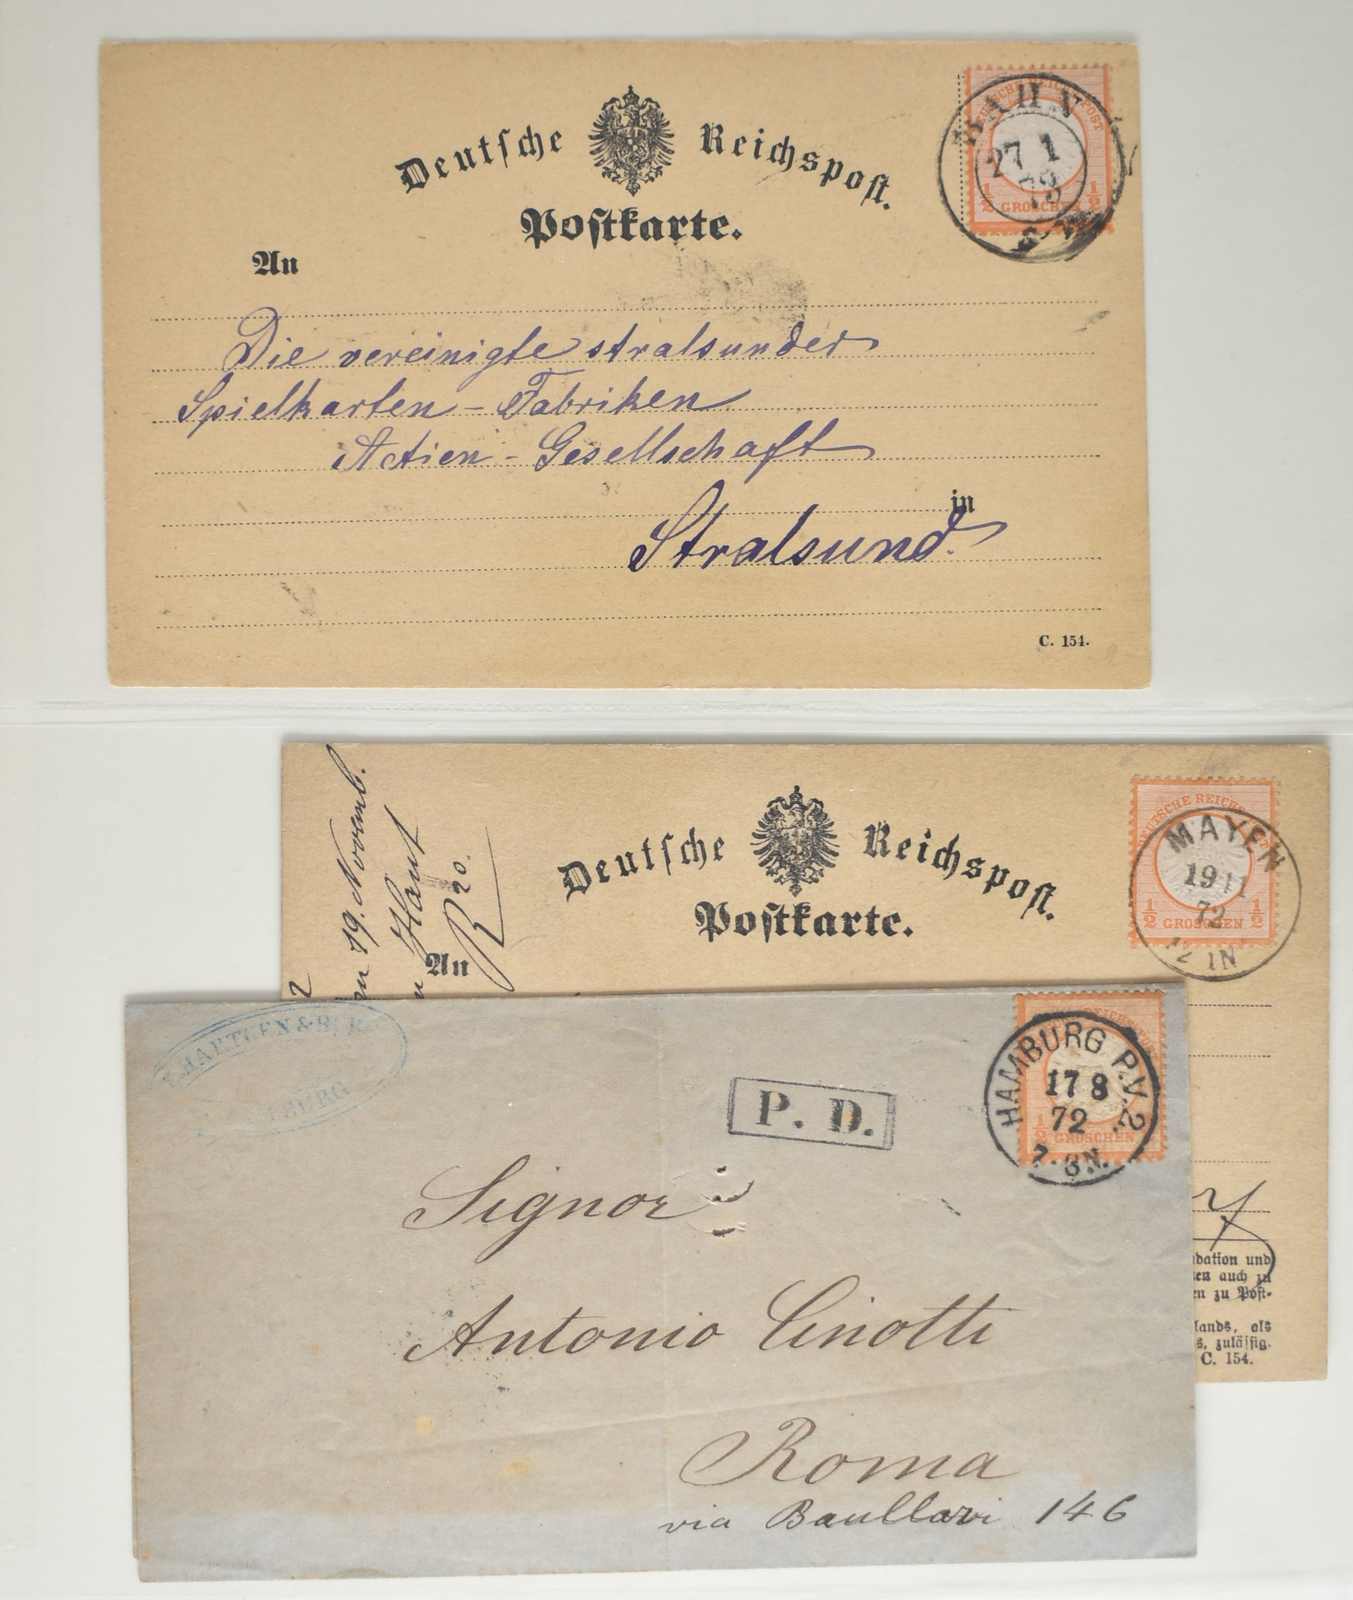 Deutsche Reichspost.
Postkarte.
An
BAHN
27 1
73
1/2 GROSCHEN 1/2
Die vereinigte stralsunder
Spielkarten-Fabriken
Actien-Gesellschaft
in
Stralsund.
C. 154.
19. Novemb.
Deutsche Reichspost.
Postkarte.
An
DEUTSCHE REICHS
1/2 GROSCHEN 1/2
MAYEN
19 11
72
12 1N
dation und
en auch zu
en zu Post-
lands, als
s, zulässig.
C. 154.
P. D.
HAMBURG P.V. 2.
17 8
72
7-8N.
1/2 GROSCHEN
Signor
Antonio Cinotti
Roma
via Baullari 146